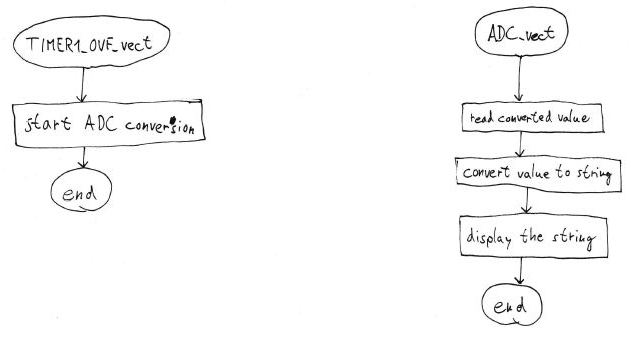 TIMER1_OVF_vect
start ADC conversion
end
ADC_vect
read converted value
convert value to string
display the string
end